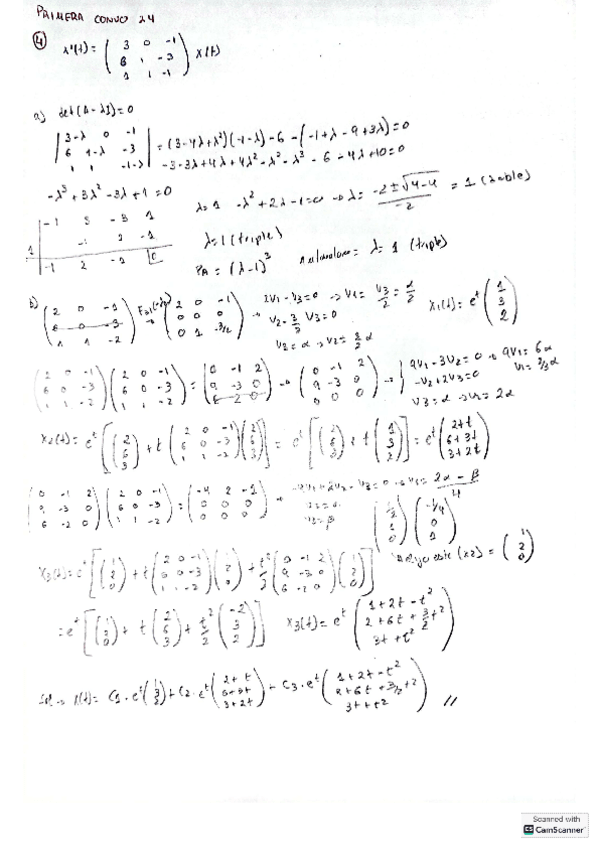 PRIMERA CONVO 24
④ x'(t) = ( 3 0 -1 ; 6 1 -3 ; 1 1 -1 ) x(t)
a) det(A-λI)=0
| 3-λ 0 -1 ; 6 1-λ -3 ; 1 1 -1-λ | = (3-4λ+λ²)(-1-λ)-6-(-1+λ-9+3λ)=0
-3-3λ+4λ+4λ²-λ²-λ³-6-4λ+10=0
-λ³+3λ²-3λ+1=0
-1 3 -3 1
1 -1 2 -1
-1 2 -1 0
λ=1 -λ²+2λ-1=0 → λ= (-2±√4-4)/-2 = 1 (doble)
λ=1 (triple)
PA = (λ-1)³
Autovalores= λ=1 (triple)
b) ( 2 0 -1 ; 6 0 -3 ; 1 1 -2 ) ( 2 0 -1 ; 0 0 0 ; 0 1 -3/2 ) → 2V1-V3=0 → V1= V3/2 = α/2
V2-3/2 V3=0
V3=α → V2= 3/2 α
X1(t)= e^t ( 1 ; 3 ; 2 )
( 2 0 -1 ; 6 0 -3 ; 1 1 -2 ) ( 2 0 -1 ; 6 0 -3 ; 1 1 -2 ) = ( 0 -1 2 ; 9 -3 0 ; 6 -2 0 ) → ( 0 -1 2 ; 9 -3 0 ; 0 0 0 ) → 9V1-3V2=0 → 9V1=6α
V1=2/3α
-V2+2V3=0
V3=α → V2=2α
X2(t)= e^t [ ( 2 ; 6 ; 3 ) + t ( 2 0 -1 ; 6 0 -3 ; 1 1 -2 ) ( 2 ; 6 ; 3 ) ] = e^t [ ( 2 ; 6 ; 3 ) + t ( 1 ; 3 ; 2 ) ] = e^t ( 2+t ; 6+3t ; 3+2t )
( 0 -1 2 ; 9 -3 0 ; 6 -2 0 ) ( 2 0 -1 ; 6 0 -3 ; 1 1 -2 ) = ( -4 2 -1 ; 0 0 0 ; 0 0 0 ) → -4V1+2V2-V3=0 → V1= (2α-β)/4
V2=α
V3=β
( 1/2 ; 1 ; 0 ) ( -1/4 ; 0 ; 1 )
(x2) = ( 1 ; 2 ; 0 )
X3(t)=e^t [ ( 1 ; 2 ; 0 ) + t ( 2 0 -1 ; 6 0 -3 ; 1 1 -2 ) ( 1 ; 2 ; 0 ) + t²/2 ( 0 -1 2 ; 9 -3 0 ; 6 -2 0 ) ( 1 ; 2 ; 0 ) ]
=e^t [ ( 1 ; 2 ; 0 ) + t ( 2 ; 6 ; 3 ) + t²/2 ( -2 ; 3 ; 2 ) ] X3(t)= e^t ( 1+2t-t² ; 2+6t+3/2t² ; 3t+t² )
Sol → X(t)= C1·e^t ( 1 ; 3 ; 2 ) + C2·e^t ( 2+t ; 6+3t ; 3+2t ) + C3·e^t ( 1+2t-t² ; 2+6t+3/2t² ; 3t+t² ) //
Scanned with
CamScanner